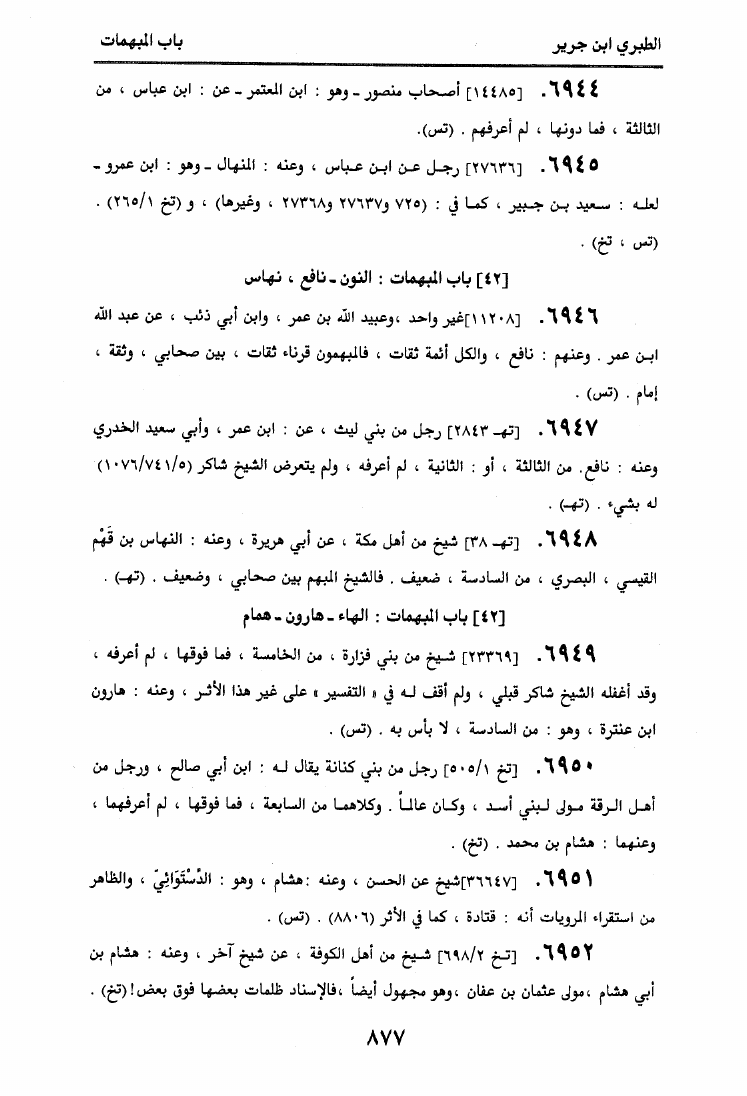 الطبري ابن جرير
باب المبهمات
٦٩٤٤. [١٤٤٨٥] أصحاب منصور ـ وهو : ابن المعتمر ـ عن : ابن عباس ، من
الثالثة ، فما دونها ، لم أعرفهم . (تس).
٦٩٤٥. [٢٧٦٣٦] رجل عن ابن عباس ، وعنه : المنهال ـ وهو : ابن عمرو ـ
لعله : سعيد بن جبير ، كما في : (٧٢٥ و٢٧٦٣٧ و٢٧٣٦٨ ، وغيرها) ، و (تخ ٢٦٥/١) .
(تس ، تخ) .
[٤٢] باب المبهمات : النون ـ نافع ، نهاس
٦٩٤٦. [١١٢٠٨]غير واحد ،وعبيد الله بن عمر ، وابن أبي ذئب ، عن عبد الله
ابن عمر . وعنهم : نافع ، والكل أئمة ثقات ، فالمبهمون قرناء ثقات ، بين صحابي ، وثقة ،
إمام . (تس) .
٦٩٤٧. [تهـ ٢٨٤٣] رجل من بني ليث ، عن : ابن عمر ، وأبي سعيد الخدري
وعنه : نافع. من الثالثة ، أو : الثانية ، لم أعرفه ، ولم يتعرض الشيخ شاكر (١٠٧٦/٧٤١/٥)
له بشيء . (تهـ) .
٦٩٤٨. [تهـ ٣٨] شيخ من أهل مكة ، عن أبي هريرة ، وعنه : النهاس بن قَهْم
القيسي ، البصري ، من السادسة ، ضعيف . فالشيخ المبهم بين صحابي ، وضعيف . (تهـ) .
[٤٢] باب المبهمات : الهاء ـ هارون ـ همام
٦٩٤٩. [٢٣٣٦٩] شيخ من بني فزارة ، من الخامسة ، فما فوقها ، لم أعرفه ،
وقد أغفله الشيخ شاكر قبلي ، ولم أقف له في « التفسير » على غير هذا الأثر ، وعنه : هارون
ابن عنترة ، وهو : من السادسة ، لا بأس به . (تس) .
٦٩٥٠. [تخ ٥٠٥/١] رجل من بني كنانة يقال له : ابن أبي صالح ، ورجل من
أهل الرقة مولى لبني أسد ، وكان عالماً . وكلاهما من السابعة ، فما فوقها ، لم أعرفهما ،
وعنهما : هشام بن محمد . (تخ) .
٦٩٥١. [٣٦٦٤٧]شيخ عن الحسن ، وعنه :هشام ، وهو : الدِّسْتَوَائِيّ ، والظاهر
من استقراء المرويات أنه : قتادة ، كما في الأثر (٨٨٠٦) . (تس) .
٦٩٥٢. [تخ ٦٩٨/٢] شيخ من أهل الكوفة ، عن شيخ آخر ، وعنه : هشام بن
أبي هشام ،مولى عثمان بن عفان ،وهو مجهول أيضاً ،فالإسناد ظلمات بعضها فوق بعض!(تخ) .
٨٧٧